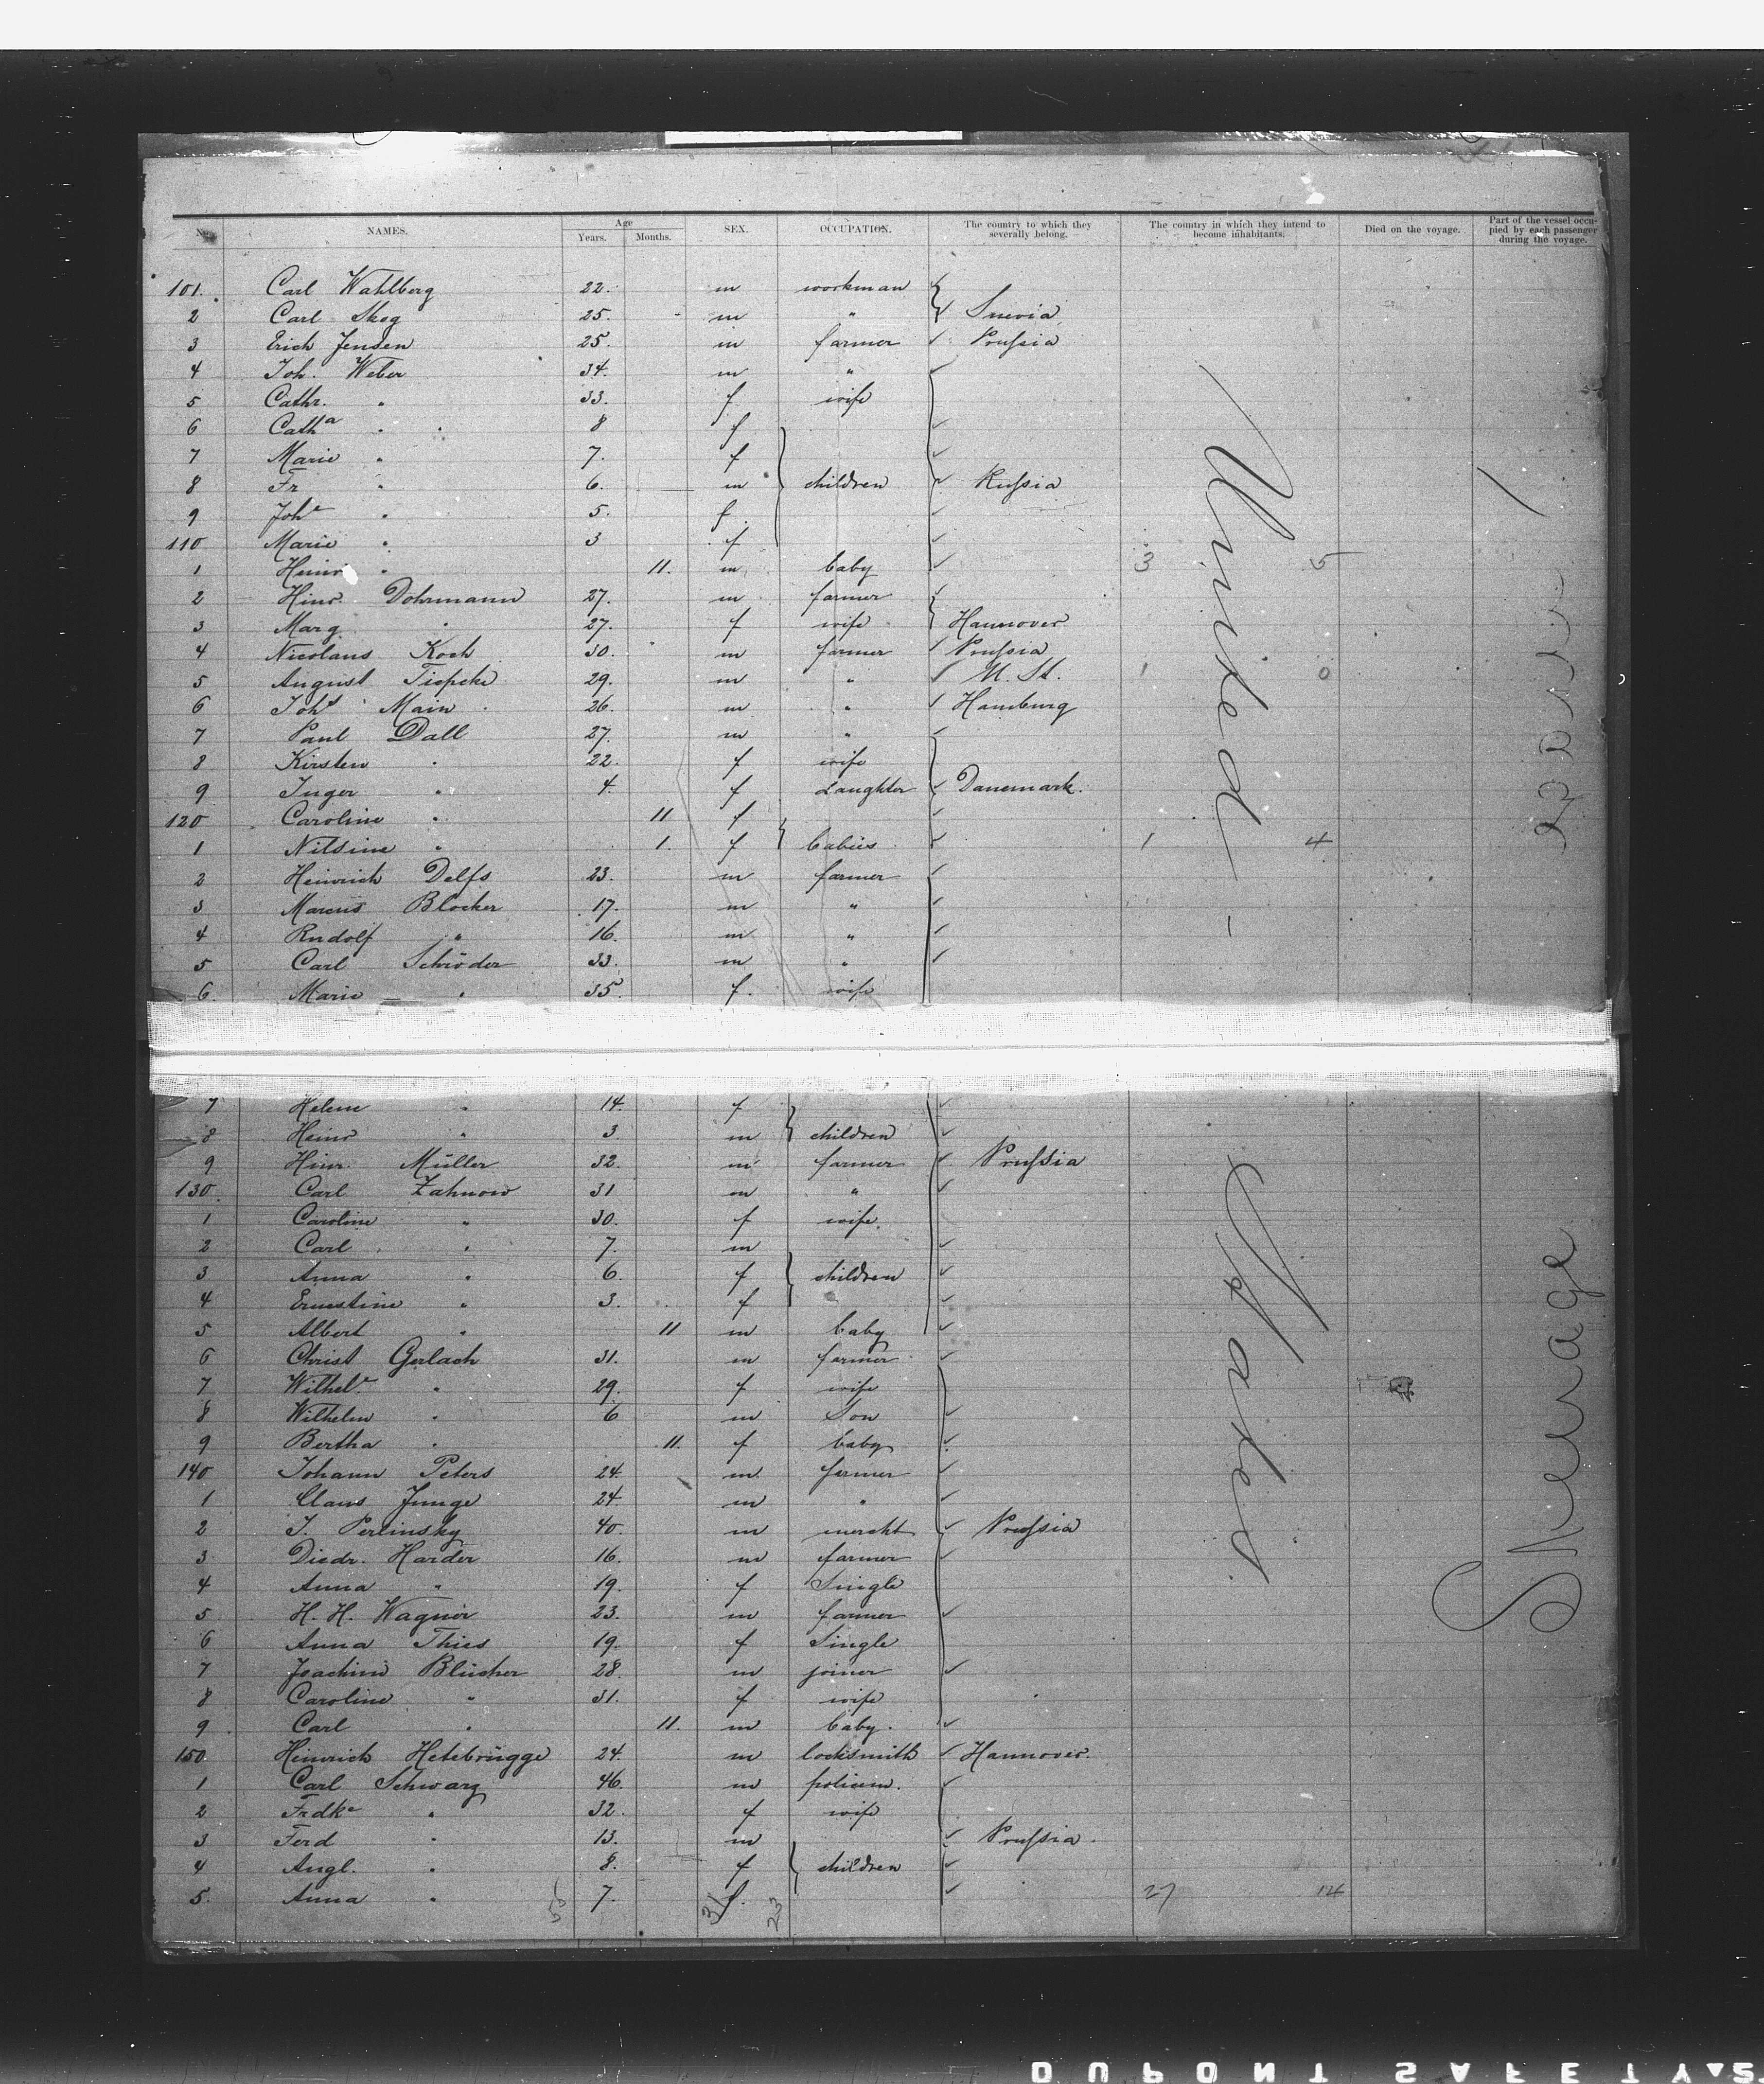 No. NAMES. Age Years. Months. SEX. OCCUPATION. The country to which they severally belong. The country in which they intend to become inhabitants. Died on the voyage. Part of the vessel occupied by each passenger during the voyage.
101. Carl Wahlberg 22. m workman
2 Carl Skog 25. m " Suecia
3 Erich Jensen 25. m farmer Prussia
4 Joh. Weber 34. m "
5 Cathr. " 33. f wife
6 Cath^a " 8 f
7 Marie " 7. f
8 Fr " 6. m children Russia
9 Joh^e " 5. f.
110 Marie " 3 f
1 Heinr " 11. m baby 3 5
2 Hinr. Dohrmann 27. m farmer
3 Marg. " 27. f wife Hannover
4 Nicolaus Koch 30. m farmer Prussia
5 August Tiepcke 29. m " U. St. 1 0
6 Joh^s Main 26. m " Hamburg
7 Paul Dall 27. m "
8 Kirsten " 22. f wife
9 Inger " 4. f daughter Danemark.
120 Caroline " 11 f
1 Nilsine " 1. f babies 1 4
2 Heinrich Delfs 23. m farmer
3 Marcus Blocker 17. m "
4 Rudolf " 16. m "
5 Carl Schröder 33. m "
6. Marie " 35. f. wife
7 Helene " 14. f
8 Heinr " 3 m children
9 Hinr. Müller 32. m farmer Prussia
130. Carl Zahnow 31 m "
1 Caroline " 30. f wife.
2 Carl " 7. m
3 Anna " 6. f children
4 Ernestine " 3. f
5 Albert " 11 m baby
6 Christ Gerlach 31. m farmer
7 Wilhel^e " 29. f wife
8 Wilhelm " 6 m Son
9 Bertha " 11. f baby
140 Johann Peters 24. m farmer
1 Claus Junge 24. m "
2 J. Perlinsky 40. m mercht Prussia
3 Diedr. Harder 16. m farmer
4 Anna " 19. f Single
5 H. H. Wagner 23. m farmer
6 Anna Thies 19. f Single
7 Joachim Blücher 28. m joiner
8 Caroline " 31. f wife
9 Carl " 11. m baby.
150. Heinrich Hetebrügge 24. m locksmith Hannover.
1 Carl Schwarz 46. m policem.
2 Frdke " 32. f wife
3 Ferd " 13. m Prussia.
4 Angl. " 8. f children
5. Anna " 7. f. 27 14
55 31 23
United States
Steerage
DUPONT SAFETY